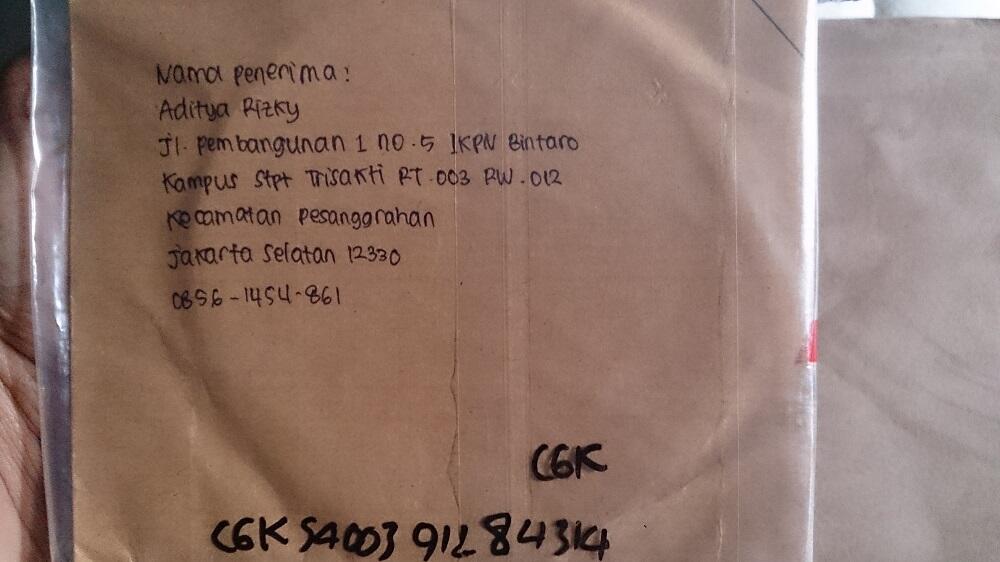 Nama penerima:
Aditya Rizky
Jl. pembangunan 1 no.5 IKPN Bintaro
Kampus Stpt Trisakti RT.003 RW.012
Kecamatan pesanggrahan
Jakarta selatan 12330
0856-1454-861
CGK
CGKSA003 912 84314